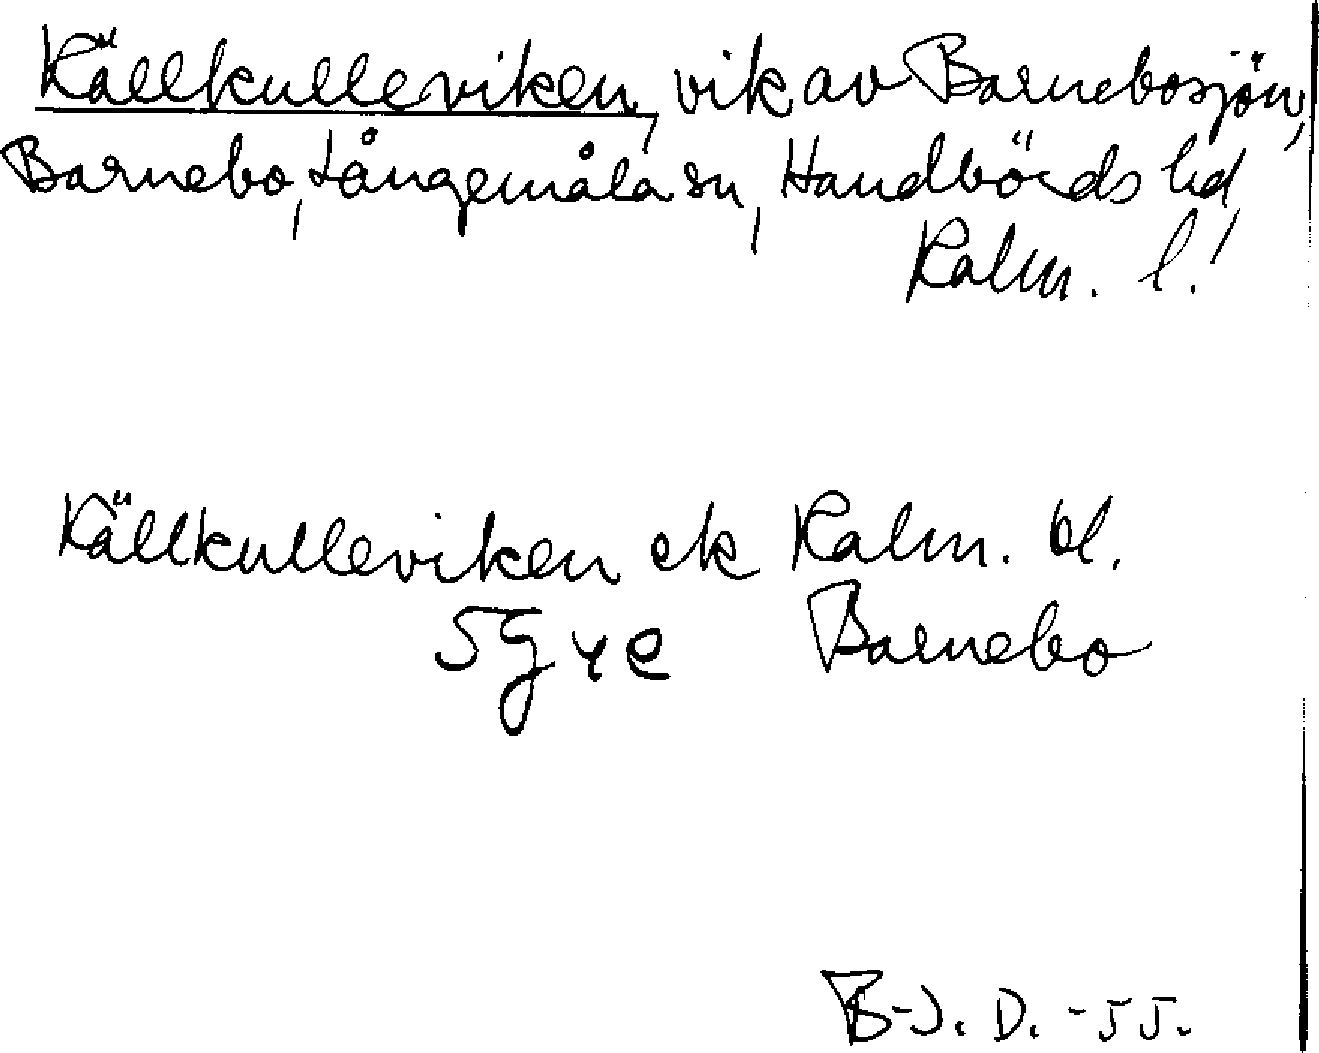 Källkulleviken, vik av Barnebosjön,
Barnebo, Långemåla sn, Handbörds hd
Kalm. l.!
Källkulleviken ek Kalm. bl.
5G ye Barnebo
B-J. D. -55.